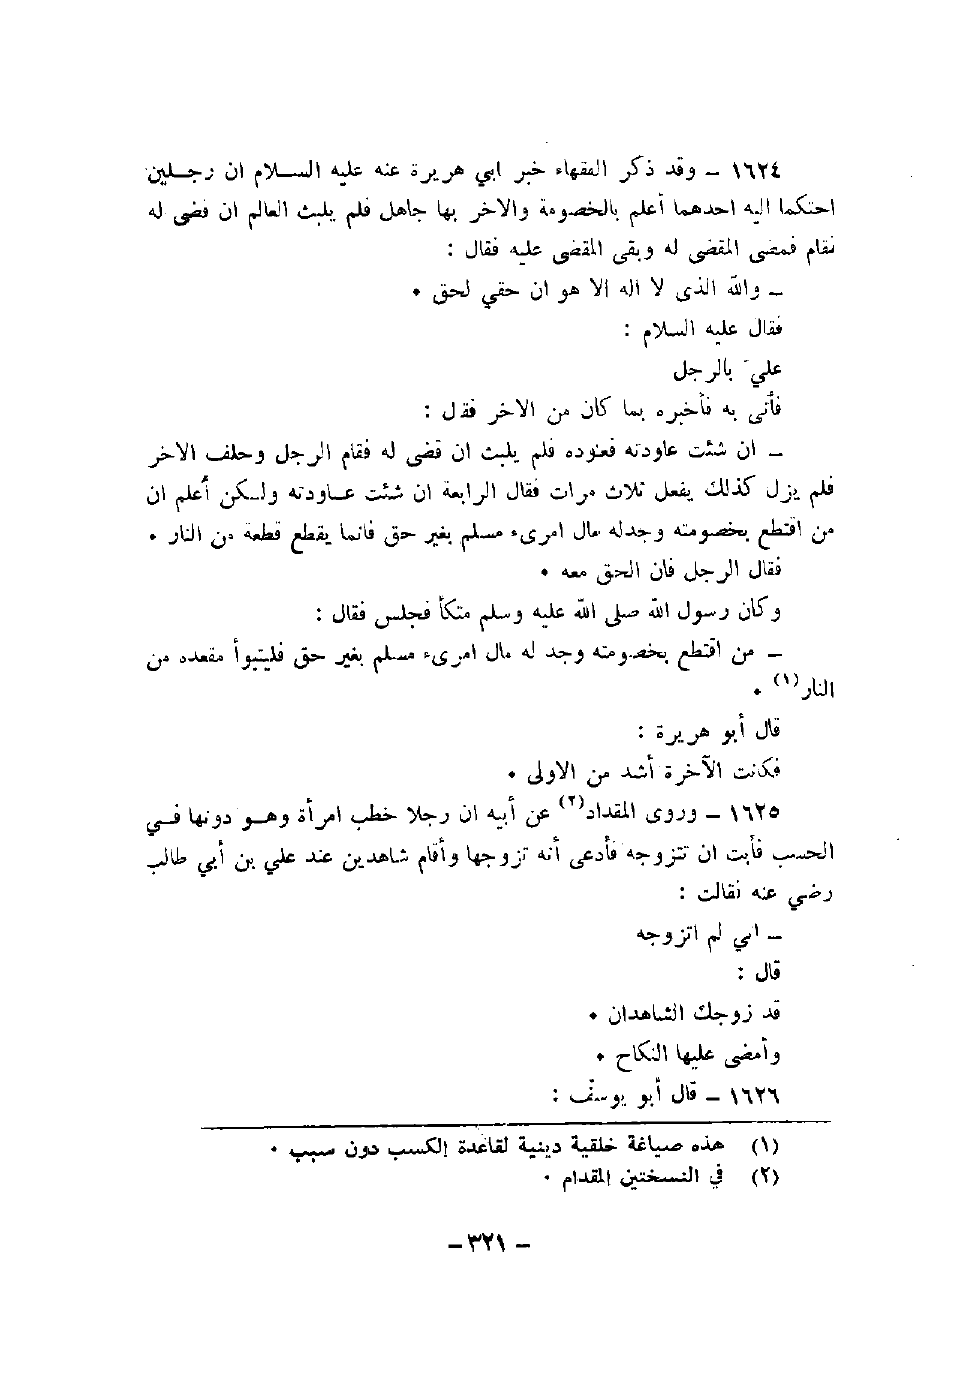 ١٦٢٤ ــ وقد ذكر الفقهاء خبر ابي هريرة عنه عليه الســلام ان رجــلين
احتكما اليه احدهما أعلم بالخصومة والاخر بها جاهل فلم يلبث العالم ان قضى له
نقام فمضى المقضى له وبقى المقضى عليه فقال :
ــ والله الذى لا اله الا هو ان حقي لحق ٠
فقال عليه السلام :
علي بالرجل
فأتى به فأخبره بما كان من الاخر فقل :
ــ ان شئت عاودته فعوده فلم يلبث ان قضى له فقام الرجل وحلف الاخر
فلم يزل كذلك يفعل ثلاث مرات فقال الرابعة ان شئت عــاودته ولــكن أعلم ان
من اقتطع بخصومته وجدله مال امرىء مسلم بغير حق فانما يقطع قطعة من النار ٠
فقال الرجل فان الحق معه ٠
وكان رسول الله صلى الله عليه وسلم متكأ فجلس فقال :
ــ من اقتطع بخصومته وجد له مال امرىء مسلم بغير حق فليتبوأ مقعده من
النار(١) ٠
قال أبو هريرة :
فكانت الآخرة أشد من الاولى ٠
١٦٢٥ ــ وروى المقداد(٢) عن أبيه ان رجلا خطب امرأة وهــو دونها فــي
الحسب فأبت ان تتزوجه فأدعى أنه تزوجها وأقام شاهدين عند علي بن أبي طالب
رضي عنه نقالت :
ــ ابي لم اتزوجه
قال :
قد زوجك الشاهدان ٠
وأمضى عليها النكاح ٠
١٦٢٦ ــ قال أبو يوسف :
(١) هذه صياغة خلقية دينية لقاعدة الكسب دون سبب ٠
(٢) في النسختين المقدام ٠
ــ ٣٢١ ــ